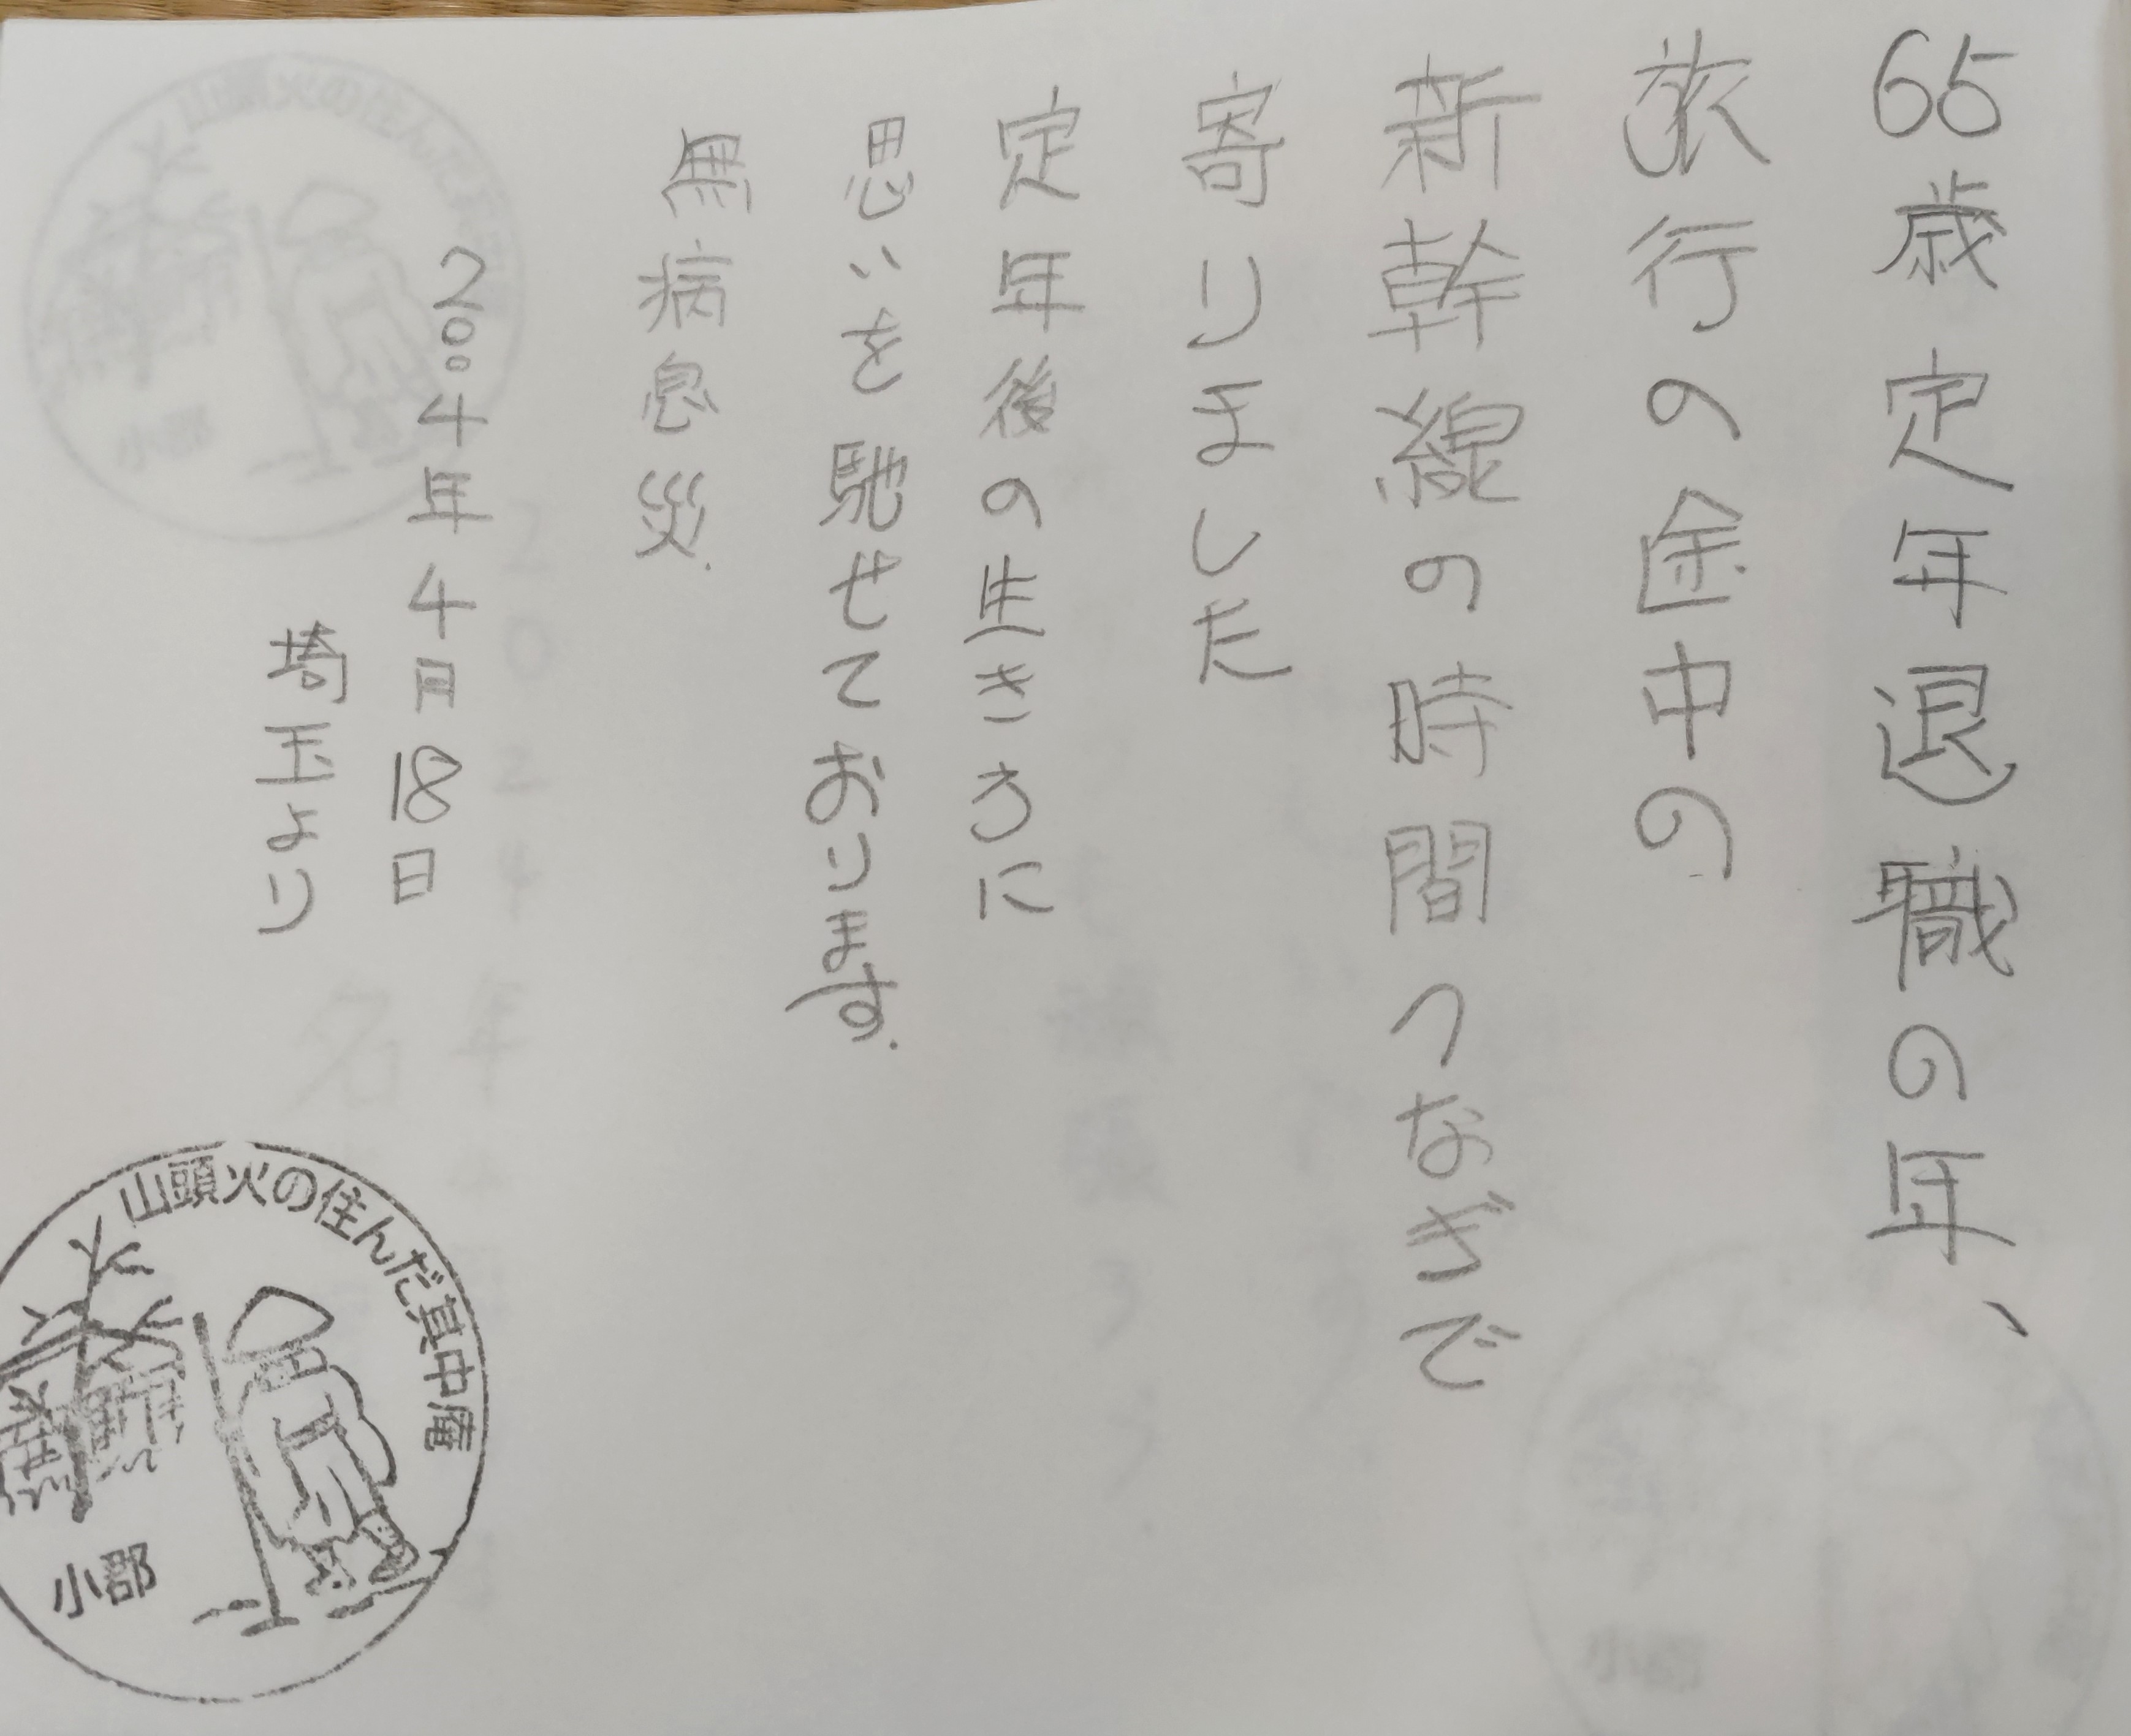 65歳定年退職の年、
旅行の途中の
新幹線の時間つなぎで
寄りました
定年後の生き方に
思いを馳せております.
無病息災.
2004年4月18日
埼玉より
山頭火の住んだ其中庵
小郡